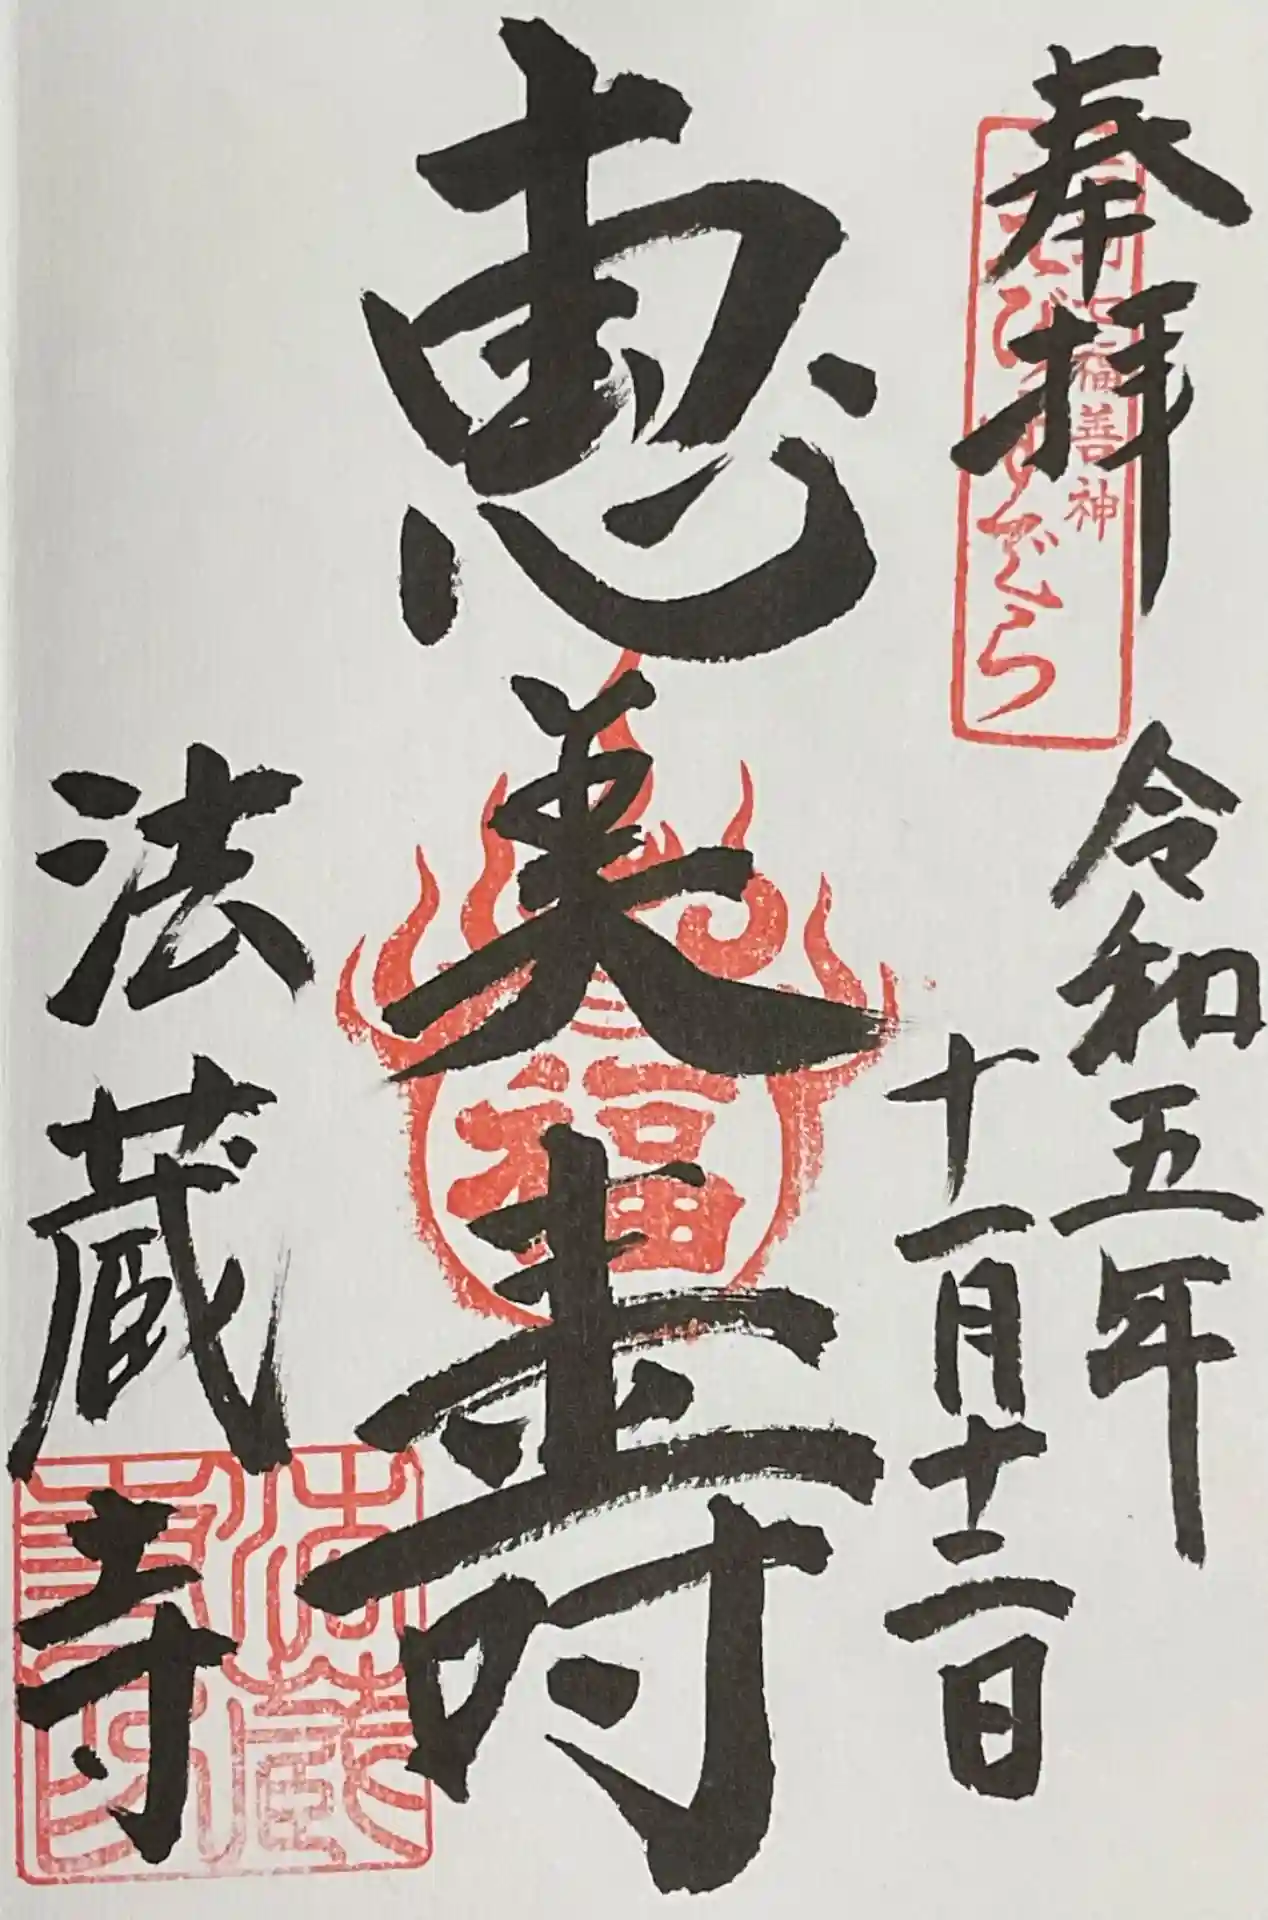 奉拝
七福善神
えびすでら
令和五年
十一月十二日
恵美寿
福
法蔵寺
法蔵
寺印